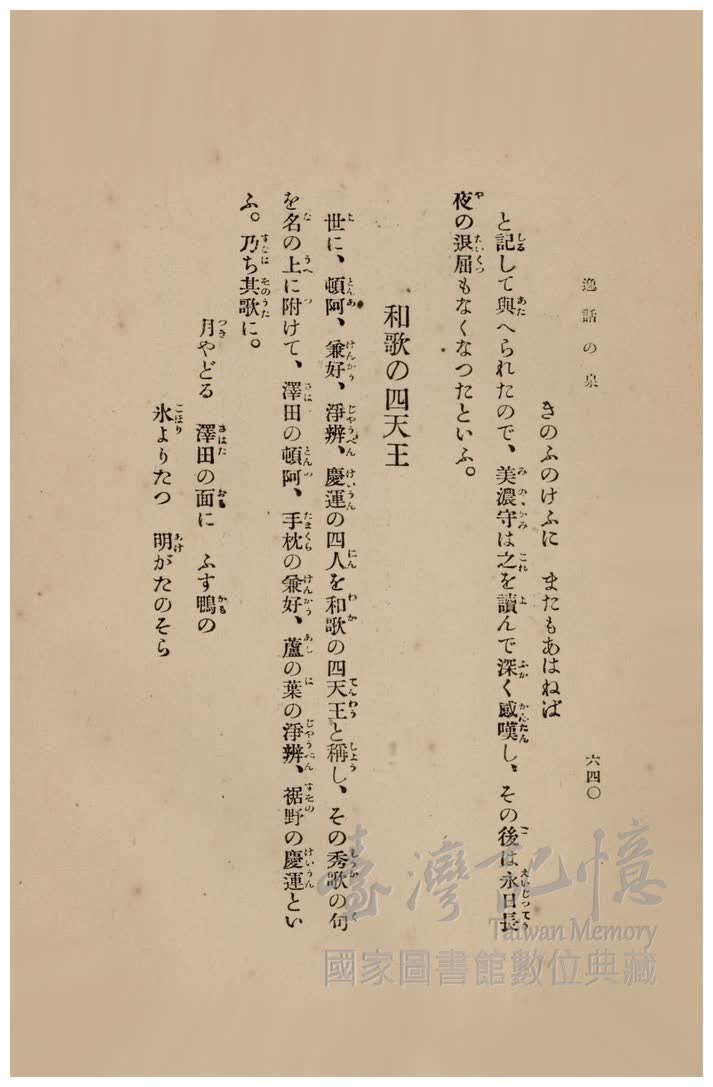 逸話の泉
六四〇
きのふのけふに　またもあはねば
と記して與へられたので、美濃守は之を讀んで深く感嘆し、その後は永日長
夜の退屈もなくなつたといふ。
和歌の四天王
世に、頓阿、兼好、淨辨、慶運の四人を和歌の四天王と稱し、その秀歌の句
を名の上に附けて、澤田の頓阿、手枕の兼好、蘆の葉の淨辨、裾野の慶運とい
ふ。乃ち其歌に。
月やどる　澤田の面に　ふす鴨の
氷よりたつ　明がたのそら
臺灣記憶
Taiwan Memory
國家圖書館數位典藏